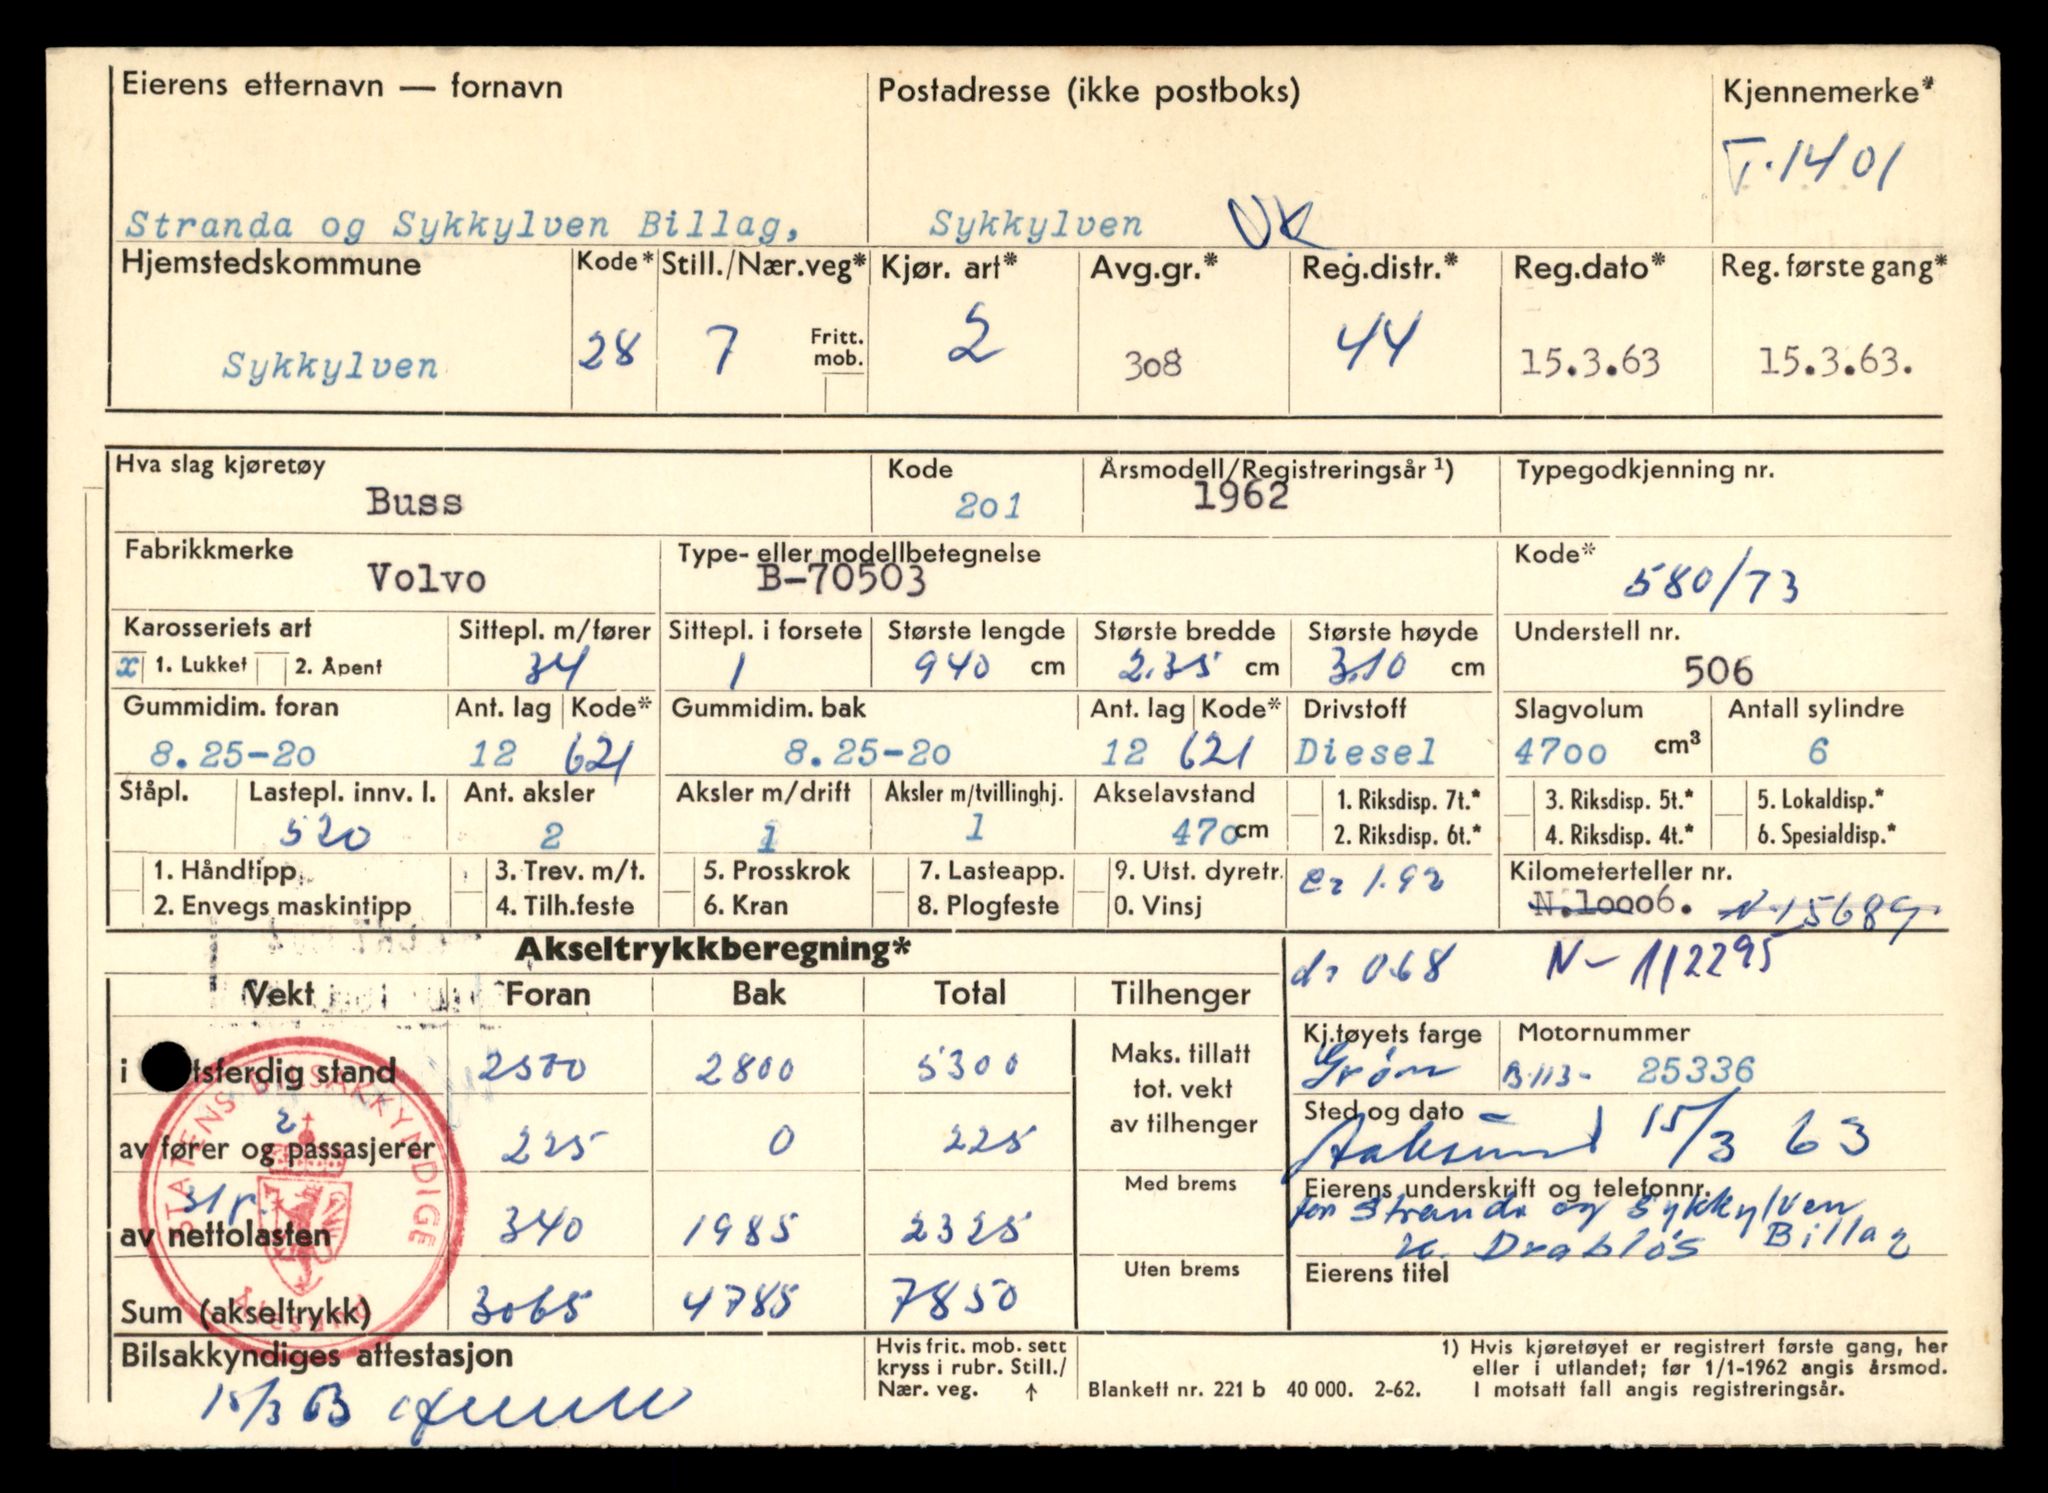 Eierens etternavn — fornavn Postadresse (ikke postboks) Kjennemerke*
T-1401
Stranda og Sykkylven Billag, Sykkylven
Hjemstedskommune Kode* Still./Nær.veg* Kjør. art* Avg.gr.* Reg.distr.* Reg.dato* Reg. første gang*
Sykkylven 28 7 Fritt. mob. 2 308 44 15.3.63 15.3.63.
Hva slag kjøretøy Kode Årsmodell/Registreringsår ¹) Typegodkjenning nr.
Buss 201 1962
Fabrikkmerke Type- eller modellbetegnelse Kode*
Volvo B-70503 580/73
Karosseriets art Sittepl. m/fører Sittepl. i forsete Største lengde Største bredde Største høyde Understell nr.
x 1. Lukket 2. Åpent 34 1 940 cm 2.35 cm 3.10 cm 506
Gummidim. foran Ant. lag Kode* Gummidim. bak Ant. lag Kode* Drivstoff Slagvolum Antall sylindre
8.25-20 12 621 8.25-20 12 621 Diesel 4700 cm³ 6
Ståpl. Lastepl. innv. l. Ant. aksler Aksler m/drift Aksler m/tvillinghj. Akselavstand 1. Riksdisp. 7t.* 3. Riksdisp. 5t.* 5. Lokaldisp.*
520 2 1 1 470 cm 2. Riksdisp. 6t.* 4. Riksdisp. 4t.* 6. Spesialdisp.*
1. Håndtipp 3. Trev. m/t. 5. Prosskrok 7. Lasteapp. 9. Utst. dyretr. Kilometerteller nr.
2. Envegs maskintipp 4. Tilh.feste 6. Kran 8. Plogfeste 0. Vinsj 1.92 N.10006. N-15689
Akseltrykkberegning* 0.68 N-112295
Vekt Foran Bak Total Tilhenger
Kj.tøyets farge Motornummer
i tsferdig stand 2500 2800 5300 Maks. tillatt tot. vekt av tilhenger Grønn B.113- 25336
Sted og dato
2
av fører og passasjerer 225 0 225 Aalesund 15/3 63
Med brems Eierens underskrift og telefonnr.
31 p.
av nettolasten 340 1985 2325 for Stranda og Sykkylven Billag
Drabløs
Uten brems Eierens titel
Sum (akseltrykk) 3065 4785 7850
STATENS BILSAKKYNDIGE
Ålesund
Bilsakkyndiges attestasjon
15/3 63
Hvis frit. mob. sett
kryss i rubr. Still./
Nær. veg. ↑
Blankett nr. 221 b 40 000. 2-62.
1) Hvis kjøretøyet er registrert første gang, her
eller i utlandet; før 1/1-1962 angis årsmod.
I motsatt fall angis registreringsår.